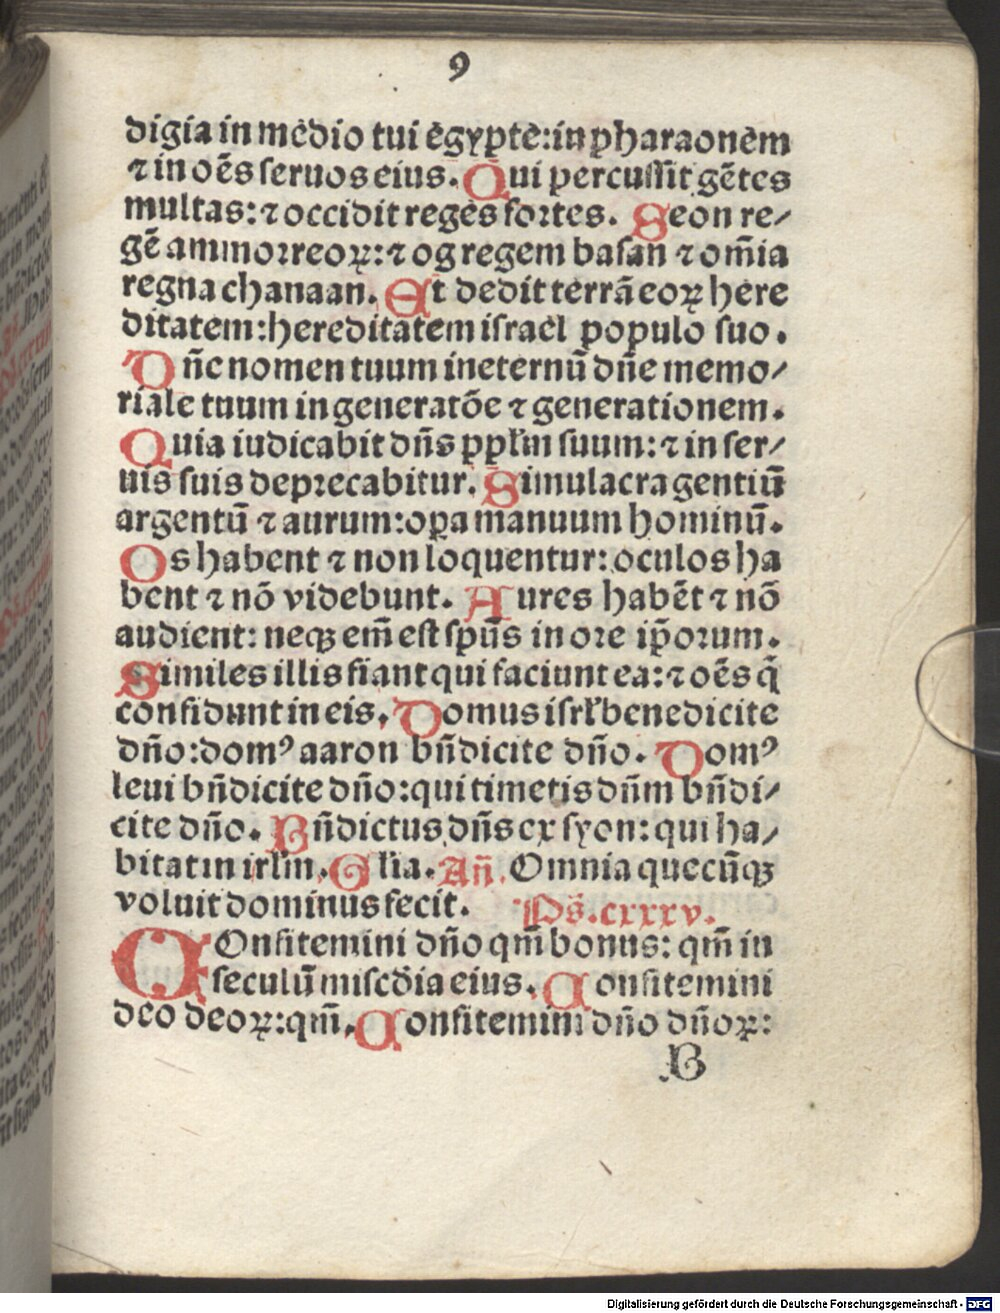 9
digia in medio tui egypte: in pharaonem
⁊ in oēs seruos eius. Qui percussit gētes
multas: ⁊ occidit reges fortes. Seon re⸗
gē aminorreoꝝ: ⁊ og regem basan ⁊ om̄ia
regna chanaan. Et dedit terrā eoꝝ here
ditatem: hereditatem israel populo suo.
Dn̄e nomen tuum in eternū dn̄e memo⸗
riale tuum in generatōe ⁊ generationem.
Quia iudicabit dn̄s pplm̄ suum: ⁊ in ser⸗
uis suis deprecabitur. Simulacra gentiū
argentū ⁊ aurum: opa manuum hominū.
Os habent ⁊ non loquentur: oculos ha
bent ⁊ nō videbunt. Aures habēt ⁊ nō
audient: neqꝫ em̄ est spūs in ore ip̄orum.
Similes illis fiant qui faciunt ea: ⁊ oēs q̄
confidunt in eis. Domus isrl̄ benedicite
dn̄o: domꝰ aaron bn̄dicite dn̄o. Domꝰ
leui bn̄dicite dn̄o: qui timetis dn̄m bn̄di⸗
cite dn̄o. Bn̄dictus dn̄s ex syon: qui ha⸗
bitat in irlm̄. Gl̄ia. An̄. Omnia quecūqꝫ
voluit dominus fecit. Ps̄. cxxxv.
COnfitemini dn̄o qm̄ bonus: qm̄ in
seculū misc̄dia eius. Confitemini
deo deoꝝ: qm̄. Confitemini dn̄o dn̄oꝝ:
B
Digitalisierung gefördert durch die Deutsche Forschungsgemeinschaft - DFG